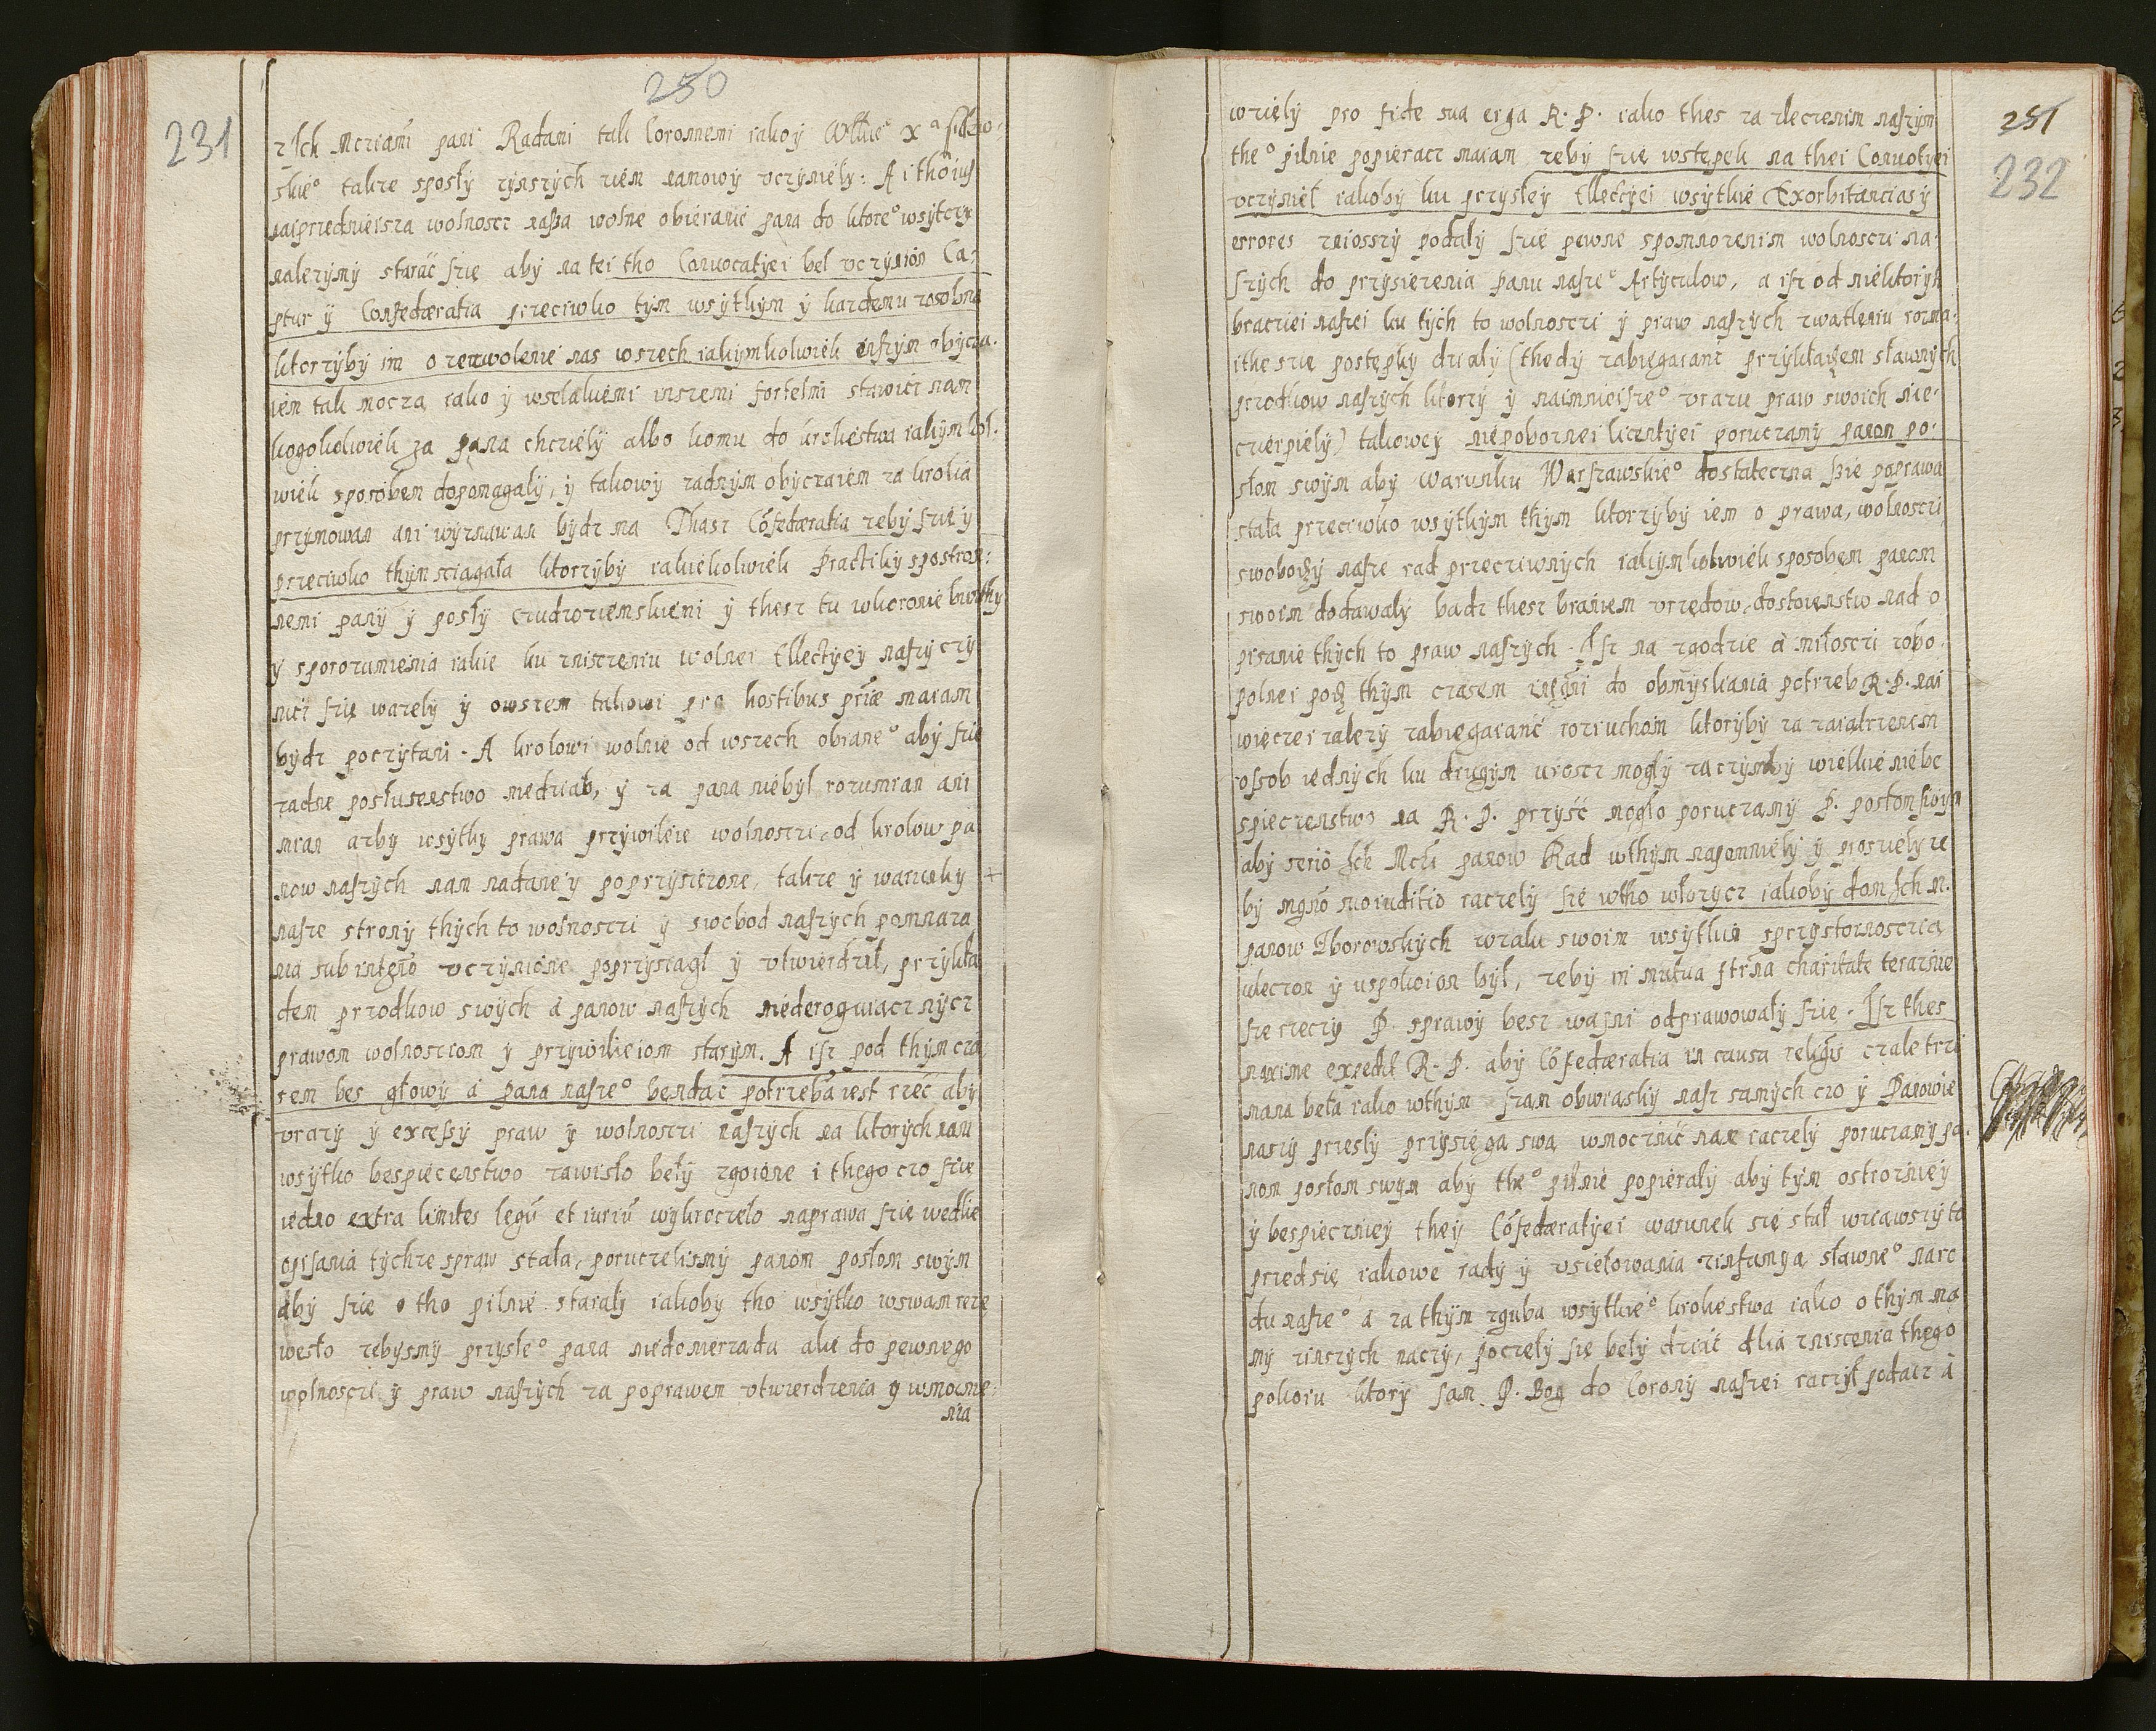 250
231
z Ich Mcziami pani Radami tak Coronnemi iako y Wktie° X^a
skie° takze sposły zynszych ziem namowy vczyniely: A i tho iusz
naiprzednieisza wolnoscz nasza wolne obieranie pana do ktore° wsytczy
nalezymy starać szie aby na tei tho Conuocatyei bel vczynion Ca-
ptur y Confederatia przeciwko tym wsytkym y kazdemu zosobna
ktorzyby im o zezwolenie nas wszech iakymkolwiek inszym obycza-
iem tak moczą iako y wselakiemi inszemi fortelmi stawicz nam
kogokolwiek za pana chcziely albo komu do krolestwa iakym kol-
wiek sposobem dopomagaly, y takowy zadnym obyczaiem za krolia
przymowan ani wyznawan bydz ma Thasz Cofederatia zeby szie y
przeciwko thym sciagała ktorzyby iakiekolwiek practiky spostron-
nemi pany y posły czudzoziemskiemi y thesz tu wkoronie bunthy
y sporozumienia iakie ku zniszczeniu wolnei Ellectyey naszy czy
nicz szie wazely y owszem takowi pro hostibus priae maiam
bydz poczytani. A krolowi wolnie od wszech obrane° aby szie
zadne posłusenstwo niedziało, y za pana niebył rozumian ani
mian azby wsytky prawa przywileie wolnosczi od krolow pa
now naszych nam nadane y poprzysiezone, takze y warunky +
nasze strony thych to wolnosczi y swobod naszych pomnaza
nia sub vczynione poprzysiagł y vtwierdził, przykła
dem przodkow swych a panow naszych niederoguiacz nicz
prawom wolnoscziom y przywileiom starym. A isz pod thym cza
sem bes głowy a pana nasze° bendać potrzeba iest rzeć aby
vrazy y excessy praw y wolnosczi naszych na ktorych nam
wsytko bespieczenstwo zawisło beły zgoione i thego czo szie
iedno extra limites legū et iuriū wykroczeło naprawa szie wedlie
opisania tychze spraw stała, poruczelismy panom posłom swym
aby szie o tho pilnie starały iakoby tho wsytko wswam rezę
wesło zebysmy przysłe° pana niedomierzadu ale do pewnego
wolnosczi y praw naszych za poprawem vtwierdzenia y wmocnie-
nia
251
232
wziely pro fide sua erga R. P. iako thes za zleczenim naszym
the° pilnie popieracz maiam zeby szie wstępek na thei Conuotyei
vczynieł iakoby ku przysłey Ellectyei wsytkie Exorbitancias y
errores zniossszy podały szie pewne spomnozenim wolnosczi na-
szych do przysiezenia panu nasze° Artyculow, a isz od niektorych
bracziei naszei ku tych to wolnosczi y praw naszych zwątleniu rozma-
ithe szie postępky działy (thedy zabiegaianc przykładem sławnych
przodkow naszych ktorzy y naimnieisze° vrazu praw swoich nie-
czierpiely) takowey niepobornei licentyei poruczamy panom po-
słom swym aby warunku Warszawskie° dostateczna szie poprawa
stała przeciwko wsytkym thym ktorzyby iem o prawa, wolnosczi
swobodzy nasze rad przecziwnych iakymkolwiek sposobem panom
swoim dodawaly badz thesz braniem vrzędow, dostoienstw nad o
pisanie thych to praw naszych. Isz na zgodzie a miłosczi zobo-
polnei pod thym czasem do obmysliania potrzeb R. P. nai
więczei zalezy zabiegaianć rozruchom ktorÿby za zaiatrzenem
ossob iednych ku drugym vroscz mogły zaczymby wielkie niebe
spieczenstwo na R. P. przyść mogło poruczamy P. posłom swym
aby serio Ich Mczi panow Rad wthym napomniely y prosziely ze
by suo iudicio raczely sie wtho włozycz iakoby dom Ich M.
panow Zborowskych wzalu swoim wsytkim sprzystoinosczią
vleczon y uspokoion był, zeby in mutua charitate teraznie
sze rzeczy P. sprawy besz waśni odprawowały szie. Isz thes
maxime expedit R. P. aby Cōfederatia in causa religiōīs czale trzi
mana beła iako wthym szam obwiasky nasz samych czo y Panowie
naszy przesły przysięga swa wmocznić nam raczely poruczamy pa-
nom posłom swym aby the° pilnie popierały aby tym ostroznieÿ
y bespieczniey they Cōfederatyei warunek się stał wziawszy to
przedsię iakowe rady y vsiełowania zinfamya sławne° naro
du nasze° a za thym zguba wsytkie° krolestwa iako o thym ma
my zinszych naczy, poczeły się beły dziać dlia zniscenia thego
pokoiu ktory sam P. Bog do Corony naszei raczył podacz a